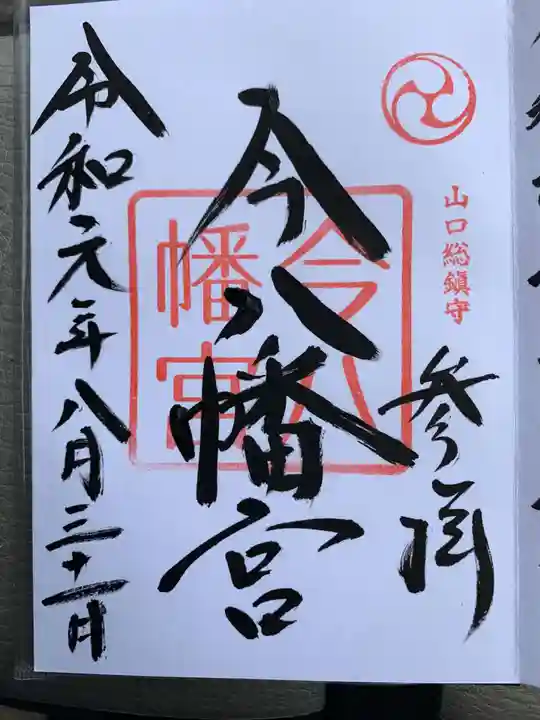 山口総鎮守
参拝
今八幡宮
今八
幡宮
令和元年八月三十一日